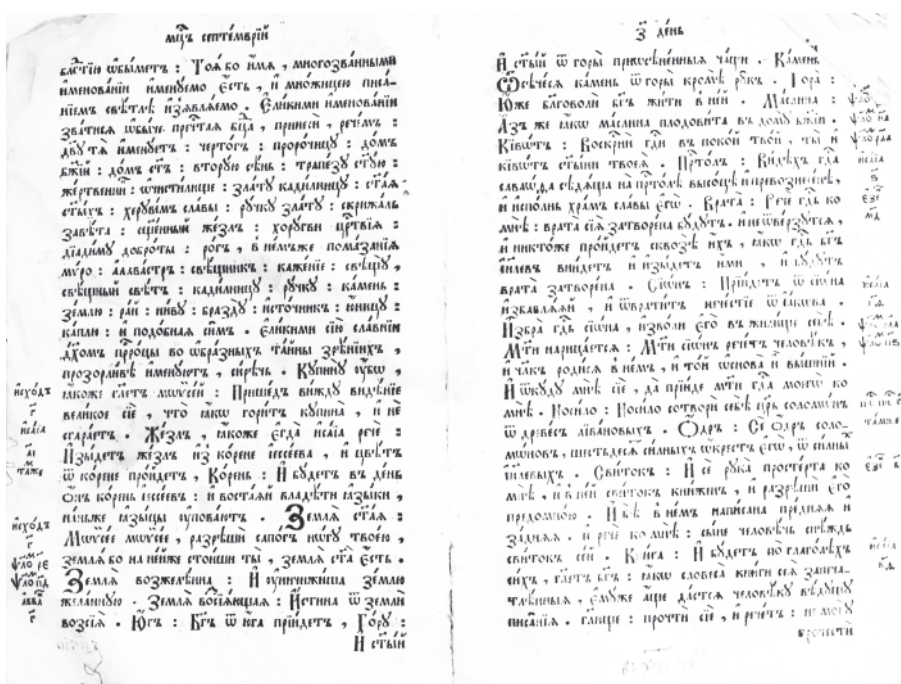 мцъ септе́мврїй
блгтїю ѡбы́метъ : Тоѧ́ бо и҆́мѧ , многозва́нными
и҆менова́нїи и҆менꙋ́емо є҆́сть , и҆ мно́жицею писа́-
нїемъ свѣ́тлѣ и҆з̾ѧвлѧ́емо . Є҆ли́кими и҆менова́нїи
зва́тисѧ ѡ҆бы́че пречⷭ҇таѧ бц҃а , принесѝ , рече́мъ :
дв҃ꙋ тѧ̀ и҆менꙋ́етъ : черто́гъ : прⷪ҇ро́чицꙋ : до́мъ
бж҃їй : до́мъ ст҃ъ : вторꙋ́ю сѣ́нь : трапе́зꙋ ст҃ꙋ́ю :
же́ртвенникъ : ѡ҆чисти́лище : зла́тꙋ кади́лницꙋ : ст҃а́ѧ
ст҃ы́хъ : херꙋві́мъ сла́вы : рꙋ́чкꙋ зла́тꙋ : скрижа́ль
завѣ́та : сщ҃е́нный же́злъ : хорꙋ́гви црⷭ҇твїѧ :
дїади́мꙋ добро́ты : ро́гъ , в не́мъже пома́занїѧ
мѵ́ро : а҆лава́стръ : свѣ́щникъ : каже́нїе : свѣщꙋ̀ ,
свѣ́щный свѣ́тъ : кади́лницꙋ : рꙋ́чкꙋ : ка́мень :
зе́млю : ра́й : ни́вꙋ : бра́здꙋ : и҆сто́чникъ : ю҆́ницꙋ :
ка́плю : и҆ подѡ́бнаѧ си̑мъ . Є҆ли́кими сїю̀ сла́внїи
дх҃омъ прⷪ҇ро́цы во ѡ҆́бразныхъ та́йны зрѣ́нїихъ ,
прозорли́вѣ и҆менꙋ́ютъ , си́рѣчь . Кꙋпинꙋ̀ ᲂу҆́бѡ ,
ꙗ҆́коже гл҃етъ мѡѷсе́й : Прише́дъ ви́ждꙋ видѣ́нїе
вели́кое сїѐ , что̀ ꙗ҆́кѡ гори́тъ кꙋпина̀ , и҆ не
сгара́етъ . Же́злъ , ꙗ҆́коже є҆гда̀ и҆са́їа речѐ :
И҆зы́детъ же́злъ и҆з̾ ко́рене і҆ессе́ева , и҆ цвѣ́тъ
ѿ ко́рене про́йдетъ , Ко́рень : И҆ бꙋ́детъ в де́нь
о҆́нъ ко́рень є҆ссе́евъ : и҆ воста́ѧй владѣ́ти ꙗ҆зы́ки ,
на́ньже ꙗ҆зы́цы ᲂу҆пова́ютъ . Землѧ̀ ст҃а́ѧ :
Мѡѷсе́е мѡѷсе́е , разрѣшѝ сапо́гъ но́гꙋ твоє́ю ,
землѧ́ бо на не́йже стои́ши ты̀ , землѧ̀ ст҃а̀ є҆́сть .
Землѧ̀ возжелѣ́нна : И҆ ᲂу҆ничижи́ша зе́млю
жела́ннꙋю . Землѧ̀ возсїѧ́ющаѧ : И҆́стина ѿ землѝ
возсїѧ̀ . Ю҆́гъ : Бг҃ъ ѿ ю҆́га прїи́детъ , Го́рꙋ :
И҆ ст҃ы́й
и҆схо́дъ
г҃
и҆са́їа
а҃і
та́же
и҆схо́дъ
г҃
ѱло́ ре
ѱло́ пд
а҆вва́
г҃
з҃ де́нь
И҆ ст҃ы́й ѿ горы̀ приѡсѣне́нныѧ ча́щи . Ка́мень
Ѿсѣче́сѧ ка́мень ѿ горы̀ кромѣ̀ рꙋ́къ . Гора̀ :
Ю҆́же бл҃говолѝ бг҃ъ жи́ти в не́й . Ма́слина :
А҆́зъ же ꙗ҆́кѡ ма́слина плодови́та въ домꙋ̀ бж҃їи .
Ківѡ́тъ : Воскрⷭ҇нѝ гдⷭ҇и въ поко́й тво́й , ты̀ и҆
ківѡ́тъ ст҃ы́ни твоеѧ̀ . Прⷭ҇то́лъ : Ви́дѣхъ гдⷭ҇а
саваѡ́ѳа сѣдѧ́ща на прⷭ҇то́лѣ высо́цѣ и҆ превознесе́нѣ ,
и҆ и҆спо́лнь хра́мъ сла́вы є҆гѡ̀ . Врата̀ : Речѐ гдⷭ҇ь ко
мнѣ̀ : врата̀ сїѧ̑ затворе́на бꙋ́дꙋтъ , и҆ не ѿве́рзꙋтсѧ ,
и҆ никто́же про́йдетъ сквозѣ̀ и҆́хъ , ꙗ҆́кѡ гдⷭ҇ь бг҃ъ
і҆и҃левъ вни́детъ и҆ и҆зы́детъ и҆́ми , и҆ бꙋ́дꙋтъ
врата̀ затворе́на . Сїѡ́нъ : Прїи́детъ ѿ сїѡ́на
и҆збавлѧ́ѧй , и҆ ѿврати́тъ нече́стїе ѿ і҆а́кѡва .
И҆збра̀ гдⷭ҇ь сїѡ́на , и҆зво́ли є҆го̀ въ жили́ще себѣ̀ .
Мт҃и нарица́етсѧ : Мт҃и сїѡ́нъ рече́тъ человѣ́къ ,
и҆ чл҃къ роди́сѧ в не́мъ , и҆ то́й ѡ҆снова̀ и҆̀ вы́шнїй .
И҆ ѿкꙋ́дꙋ мнѣ̀ сїѐ , да прїи́де мт҃и гдⷭ҇а моегѡ̀ ко
мнѣ̀ . Носи́ло : Носи́ло сотворѝ себѣ̀ цр҃ь соломѡ́нъ
ѿ древе́съ лїва́новыхъ . Ѻ҆́дръ : Сѐ ѻ҆́дръ соло-
мѡ́новъ , шестьдесѧ́ сильныхъ ѡ҆́крестъ є҆гѡ̀ , ѿ си́льныхъ
і҆и҃левыхъ . Сви́токъ : И҆ сѐ рꙋка̀ просте́рта ко
мнѣ̀ , и҆ в не́й сви́токъ кни́жен , и҆ разрѣшѝ є҆го̀
предо мно́ю . И҆ бѣ̀ в не́мъ напи́сана пре́днѧѧ и҆
за́днѧѧ . и҆ речѐ ко мнѣ̀ : сы́не человѣ́чь снѣ́ждь
сви́токъ се́й . Кни́га : И҆ бꙋ́детъ по глаго́лѣхъ
си́хъ , гл҃етъ бг҃ъ : ꙗ҆́кѡ словеса̀ кни́ги сеѧ̀ запеча-
тлѣ́нныѧ , є҆мꙋ́же а҆́ще да́стсѧ человѣ́кꙋ вѣ́дꙋщꙋ
писа̑нїѧ . гл҃юще : прочтѝ сїѐ , и҆ рече́тъ : не могꙋ̀
прочестѝ
и҆са́їа
ѕ҃
є҆зе́
мд
и҆са́їа
та́мже
є҆зе́ в
и҆са́їа